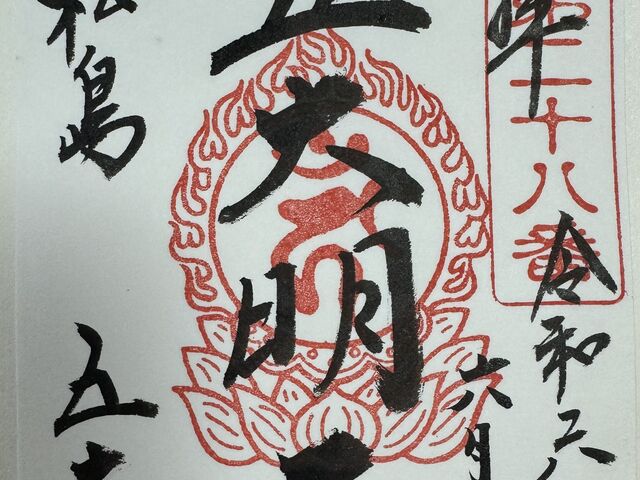 二十八番
令和
六月
五大明
松島
五大